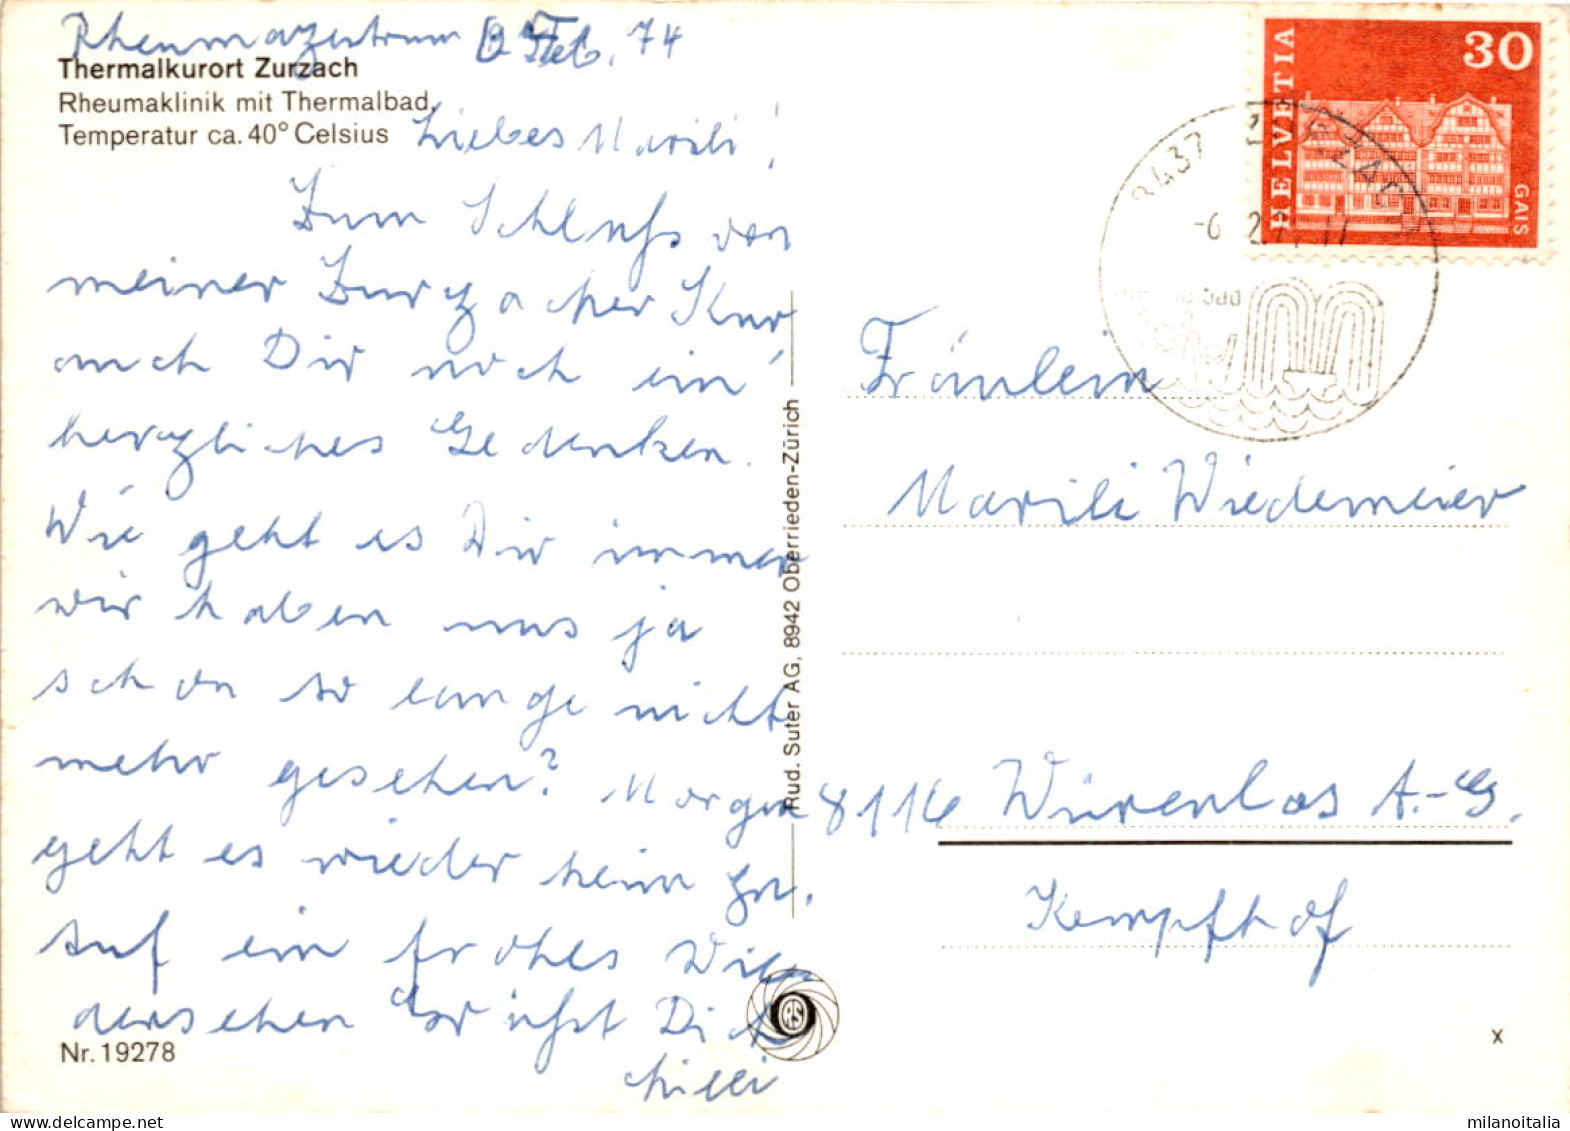 Rheumazentrum Feb. 74
Thermalkurort Zurzach
Rheumaklinik mit Thermalbad,
Temperatur ca. 40° Celsius
Liebes Marili!
Zum Schluss von
meiner Zurzacher Kur
auch Dir noch ein
herzliches Gedenken.
Wie geht es Dir immer
wir haben uns ja
schon so lange nicht
mehr gesehen? Morgen
geht es wieder heim zu.
Auf ein frohes Wie
dersehen Grüsst Dich
Milli
Nr. 19278
Rud. Suter AG, 8942 Oberrieden-Zürich
HELVETIA
30
GAIS
8437 ZURZACH
-6. 2.
Fräulein
Marili Wiedemeier
8116 Würenlos A.-G.
Kempfhof
RS
x
milanoitalia